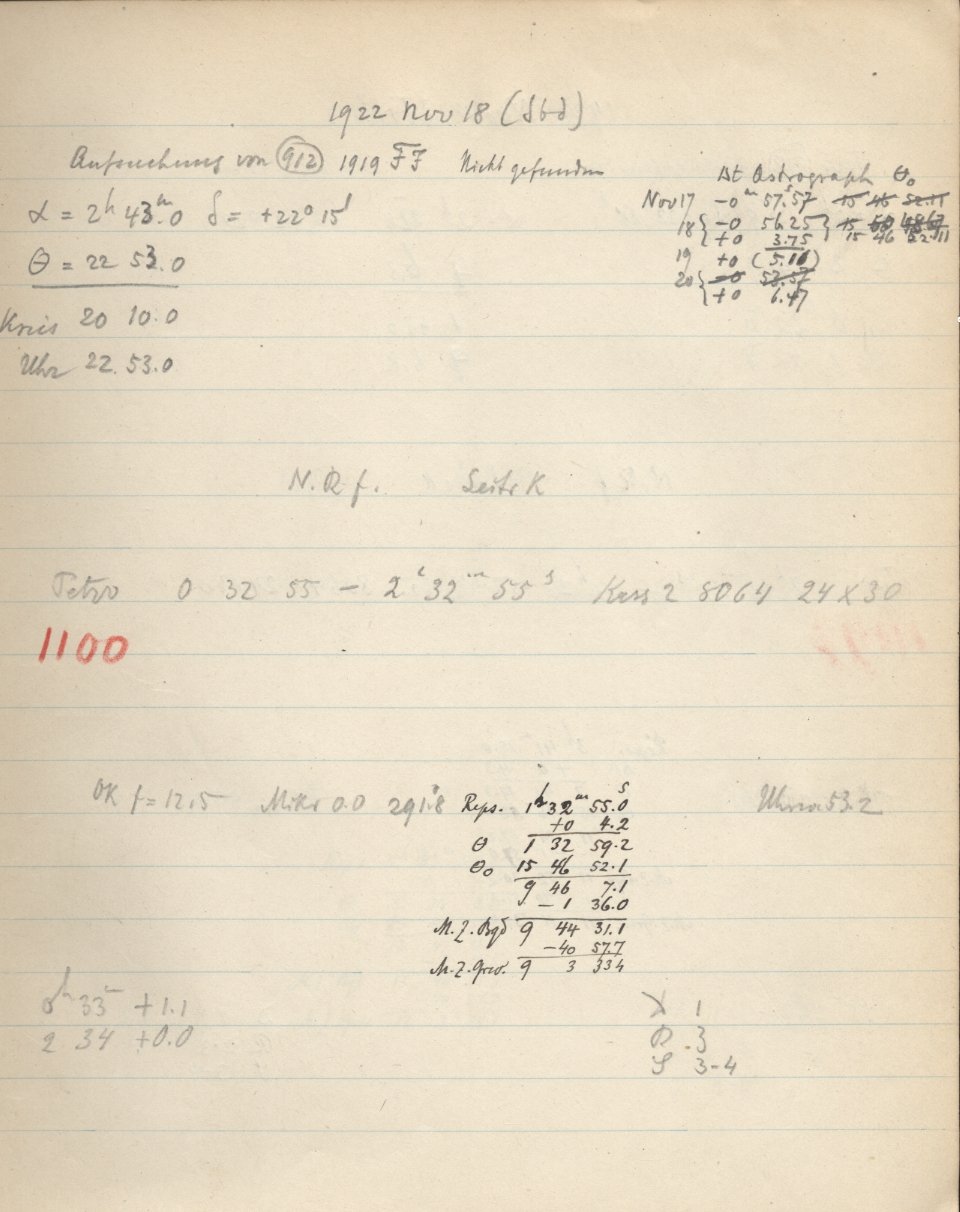 1922 Nov 18 (Sbd)
Aufsuchung von 912 1919 FJ Nicht gefunden
α = 2h 43m.0 δ = +22° 15'
θ = 22 53.0
Kreis 20 10.0
Uhr 22 53.0
Δt Astrograph θ₀
Nov 17 -0m 57.s57 15 46 52.11
18 { -0 56.25 } 15 50
+0 3.75 15 46 52.11
19 +0 (5.10)
20 { -0 53.57
+0 6.47
N. R f. Seite K
Petzv 0 32 55 - 2h 32m 55s Kass 2 8064 24 x 30
1100
OK f = 12.5 Mikr 0.0 291.8 Reps. 1h 32m 55.s0 Uhr 53.2
+0 4.2
θ 1 32 59.2
θ₀ 15 46 52.1
9 46 7.1
- 1 36.0
M.Z. Bgd 9 44 31.1
-40 57.7
M.Z. Grw. 9 3 33.4
0h 33m +1.1
2 34 +0.0
1
R 3
S 3-4